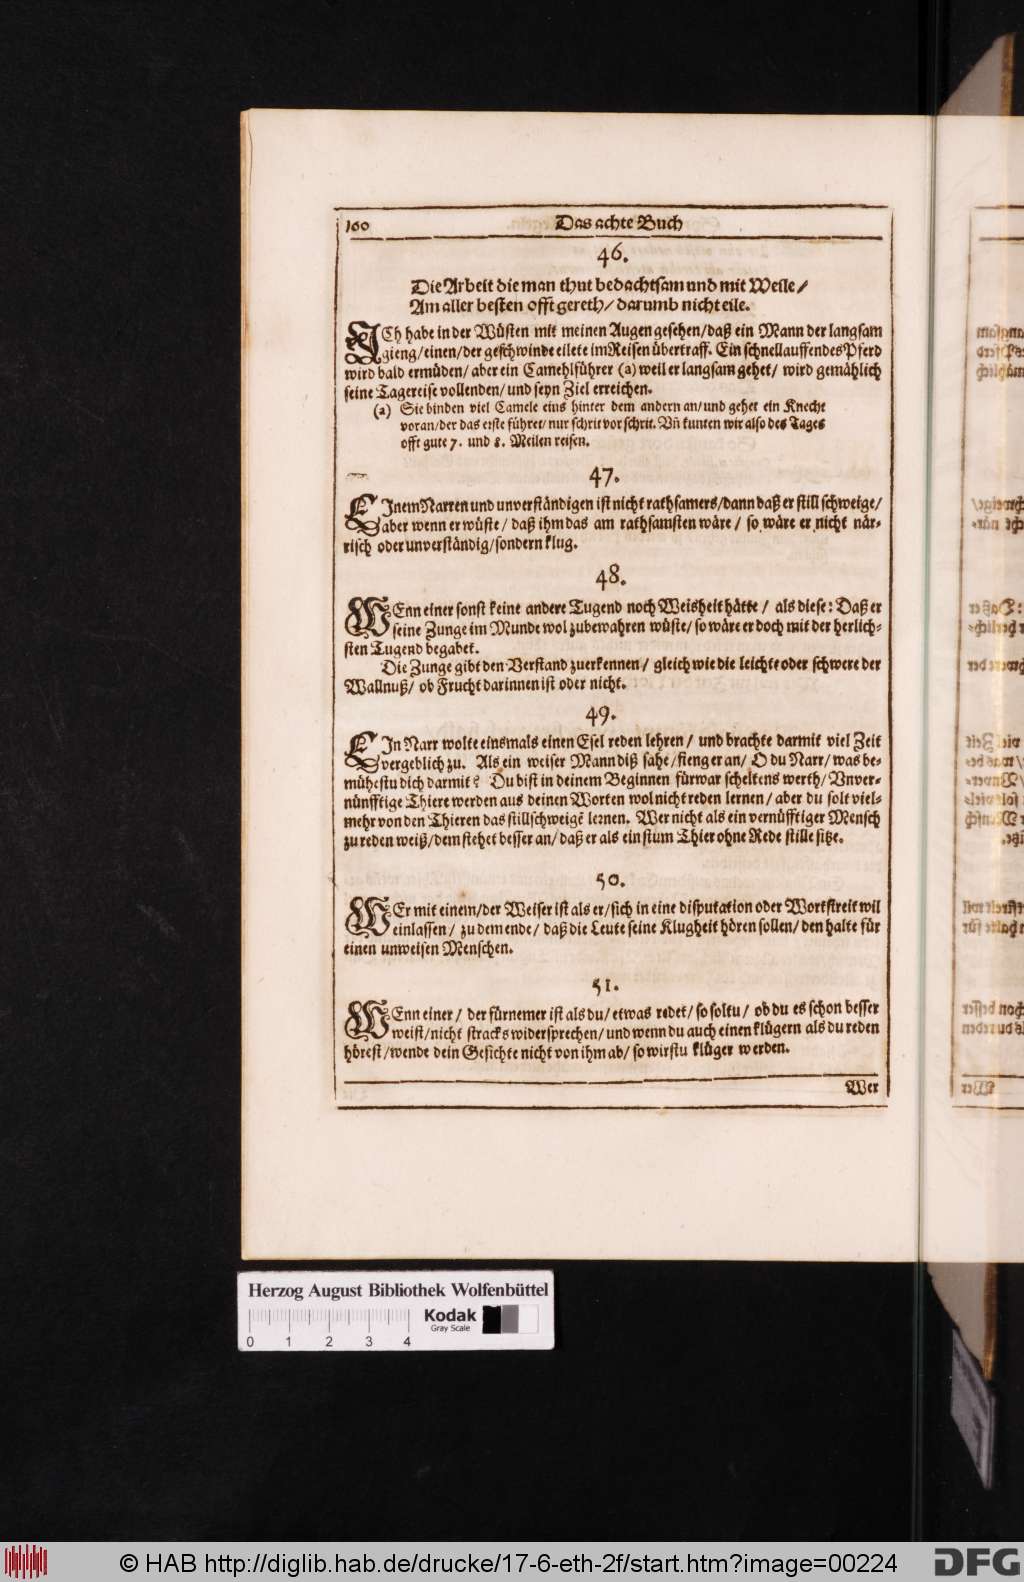 160 Das achte Buch
46.
Die Arbeit die man thut bedachtsam und mit Weile /
Am aller besten offt gereth / darumb nicht eile.
ICh habe in der Wüsten mit meinen Augen gesehen / daß ein Mann der langsam
gieng / einen / der geschwinde eilete im Reisen übertraff. Ein schnellauffendes Pferd
wird bald ermüden / aber ein Camehlführer (a) weil er langsam gehet / wird gemählich
seine Tagereise vollenden / und seyn Ziel erreichen.
(a) Sie binden viel Camele eins hinter dem andern an / und gehet ein Knecht
voran / der das erste führet / nur schrit vor schrit. Uñ kunten wir also des Tages
offt gute 7. und 8. Meilen reisen.
47.
EInem Narren und unverständigen ist nicht rathsamers / dann daß er still schweige /
aber wenn er wüste / daß ihm das am rathsamsten wäre / so wäre er nicht när-
risch oder unverständig / sondern klug.
48.
WEnn einer sonst keine andere Tugend noch Weisheit hätte / als diese: Daß er
seine Zunge im Munde wol zubewahren wüste / so wäre er doch mit der herlich-
sten Tugend begabet.
Die Zunge gibt den Verstand zuerkennen / gleich wie die leichte oder schwere der
Wallnuß / ob Frucht darinnen ist oder nicht.
49.
EIn Narr wolte einsmals einen Esel reden lehren / und brachte darmit viel Zeit
vergeblich zu. Als ein weiser Mann diß sahe / fieng er an / O du Narr / was be-
mühestu dich darmit? Du bist in deinem Beginnen fürwar scheltens werth / Unver-
nünfftige Thiere werden aus deinen Worten wol nicht reden lernen / aber du solt viel-
mehr von den Thieren das stillschweigẽ lernen. Wer nicht als ein vernüfftiger Mensch
zu reden weiß / dem stehet besser an / daß er als ein stum Thier ohne Rede stille sitze.
50.
WEr mit einem / der Weiser ist als er / sich in eine disputation oder Wortstreit wil
einlassen / zu dem ende / daß die Leute seine Klugheit hören sollen / den halte für
einen unweisen Menschen.
51.
WEnn einer / der fürnemer ist als du / etwas redet / so soltu / ob du es schon besser
weist / nicht stracks widersprechen / und wenn du auch einen klügern als du reden
hörest / wende dein Gesichte nicht von ihm ab / so wirstu klüger werden.
Wer
Herzog August Bibliothek Wolfenbüttel
Kodak
Gray Scale
0 1 2 3 4
© HAB http://diglib.hab.de/drucke/17-6-eth-2f/start.htm?image=00224
DFG